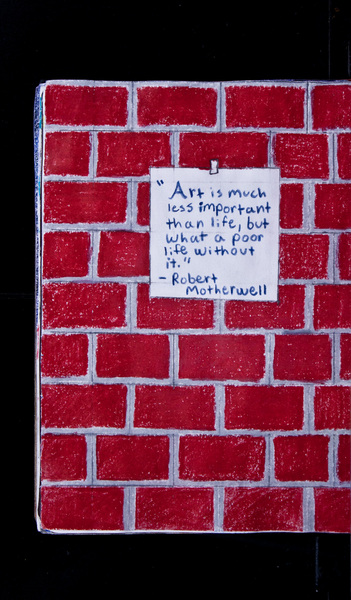 "Art is much
less important
than life, but
what a poor
life without
it."
- Robert
Motherwell